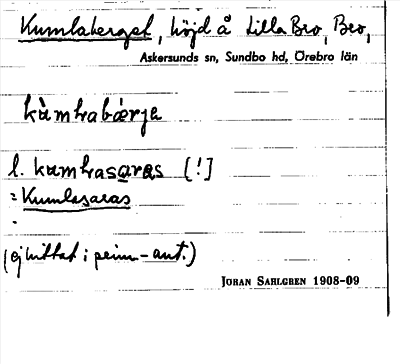 Kumlaberget, höjd å Lilla Bro, Bro,
Askersunds sn, Sundbo hd, Örebro län
kùmlabärja
l. kumlasaras [!]
= Kumlasaras
(ej hittat i prim-ant.)
JÖRAN SAHLGREN 1908-09